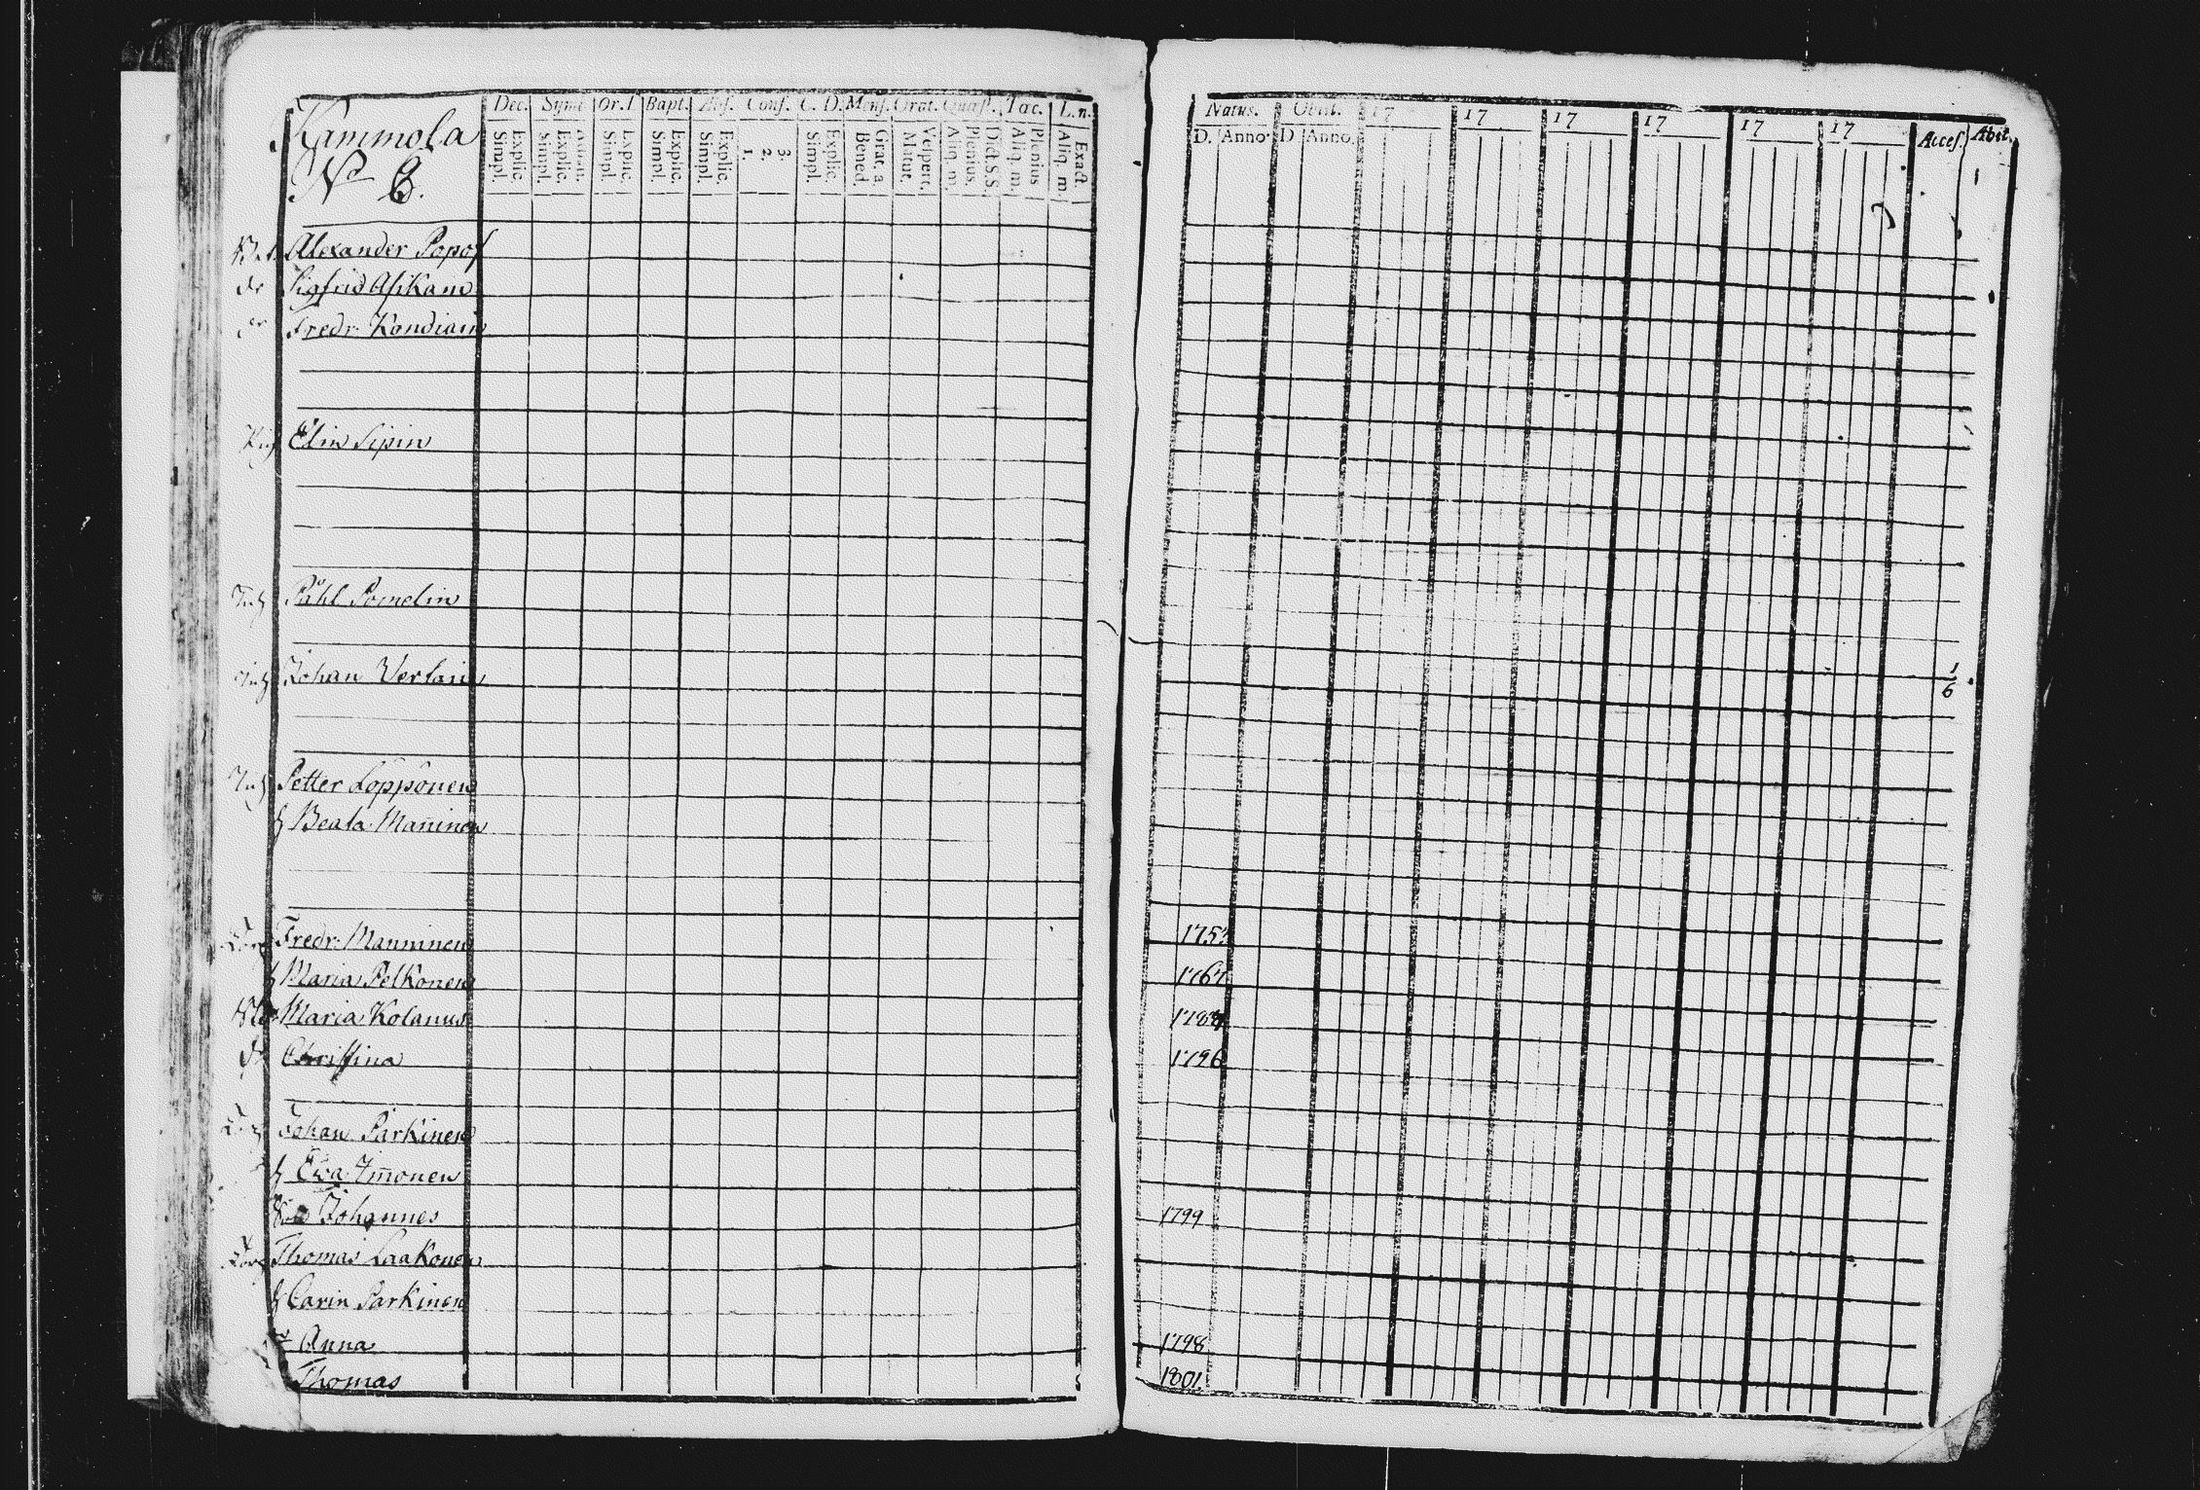 Kammola
Dec. Symb Or. I Bapt. Abs. Conf. C. D. Mens. Orat. Quæst. Tac. L.n.
Simpl. Explic. Simpl. Explic. Simpl. Explic. Simpl. Explic. Simpl. Explic. 1. 2. 3. Simpl. Explic. Bened. Grat. a. Matut. Vespert. Aliq. m. Plenius. Dict.S.S. Aliq. m. Plenius Aliq. m. Exact.
Natus. Obiit. 17 17 17 17 17 17 Acces. Abit.
D. Anno D Anno.
No 6.
Alexander Popof
Sigfrid Asikain
Fredr. Kondiain
Elin Sipin
Påhl Pomelin
Johan Verlain
1
6
Petter Lopponen
Beata Mañinen
Fredr. Manninen 175
Maria Pelkonen 1767
Maria Kolanus 178
Christina 1796
Johan Parkinen
Eva Im̃onen
Johannes 1799
Thomas Laakonen
Carin Parkinen
Anna 1798
Thomas 1801.